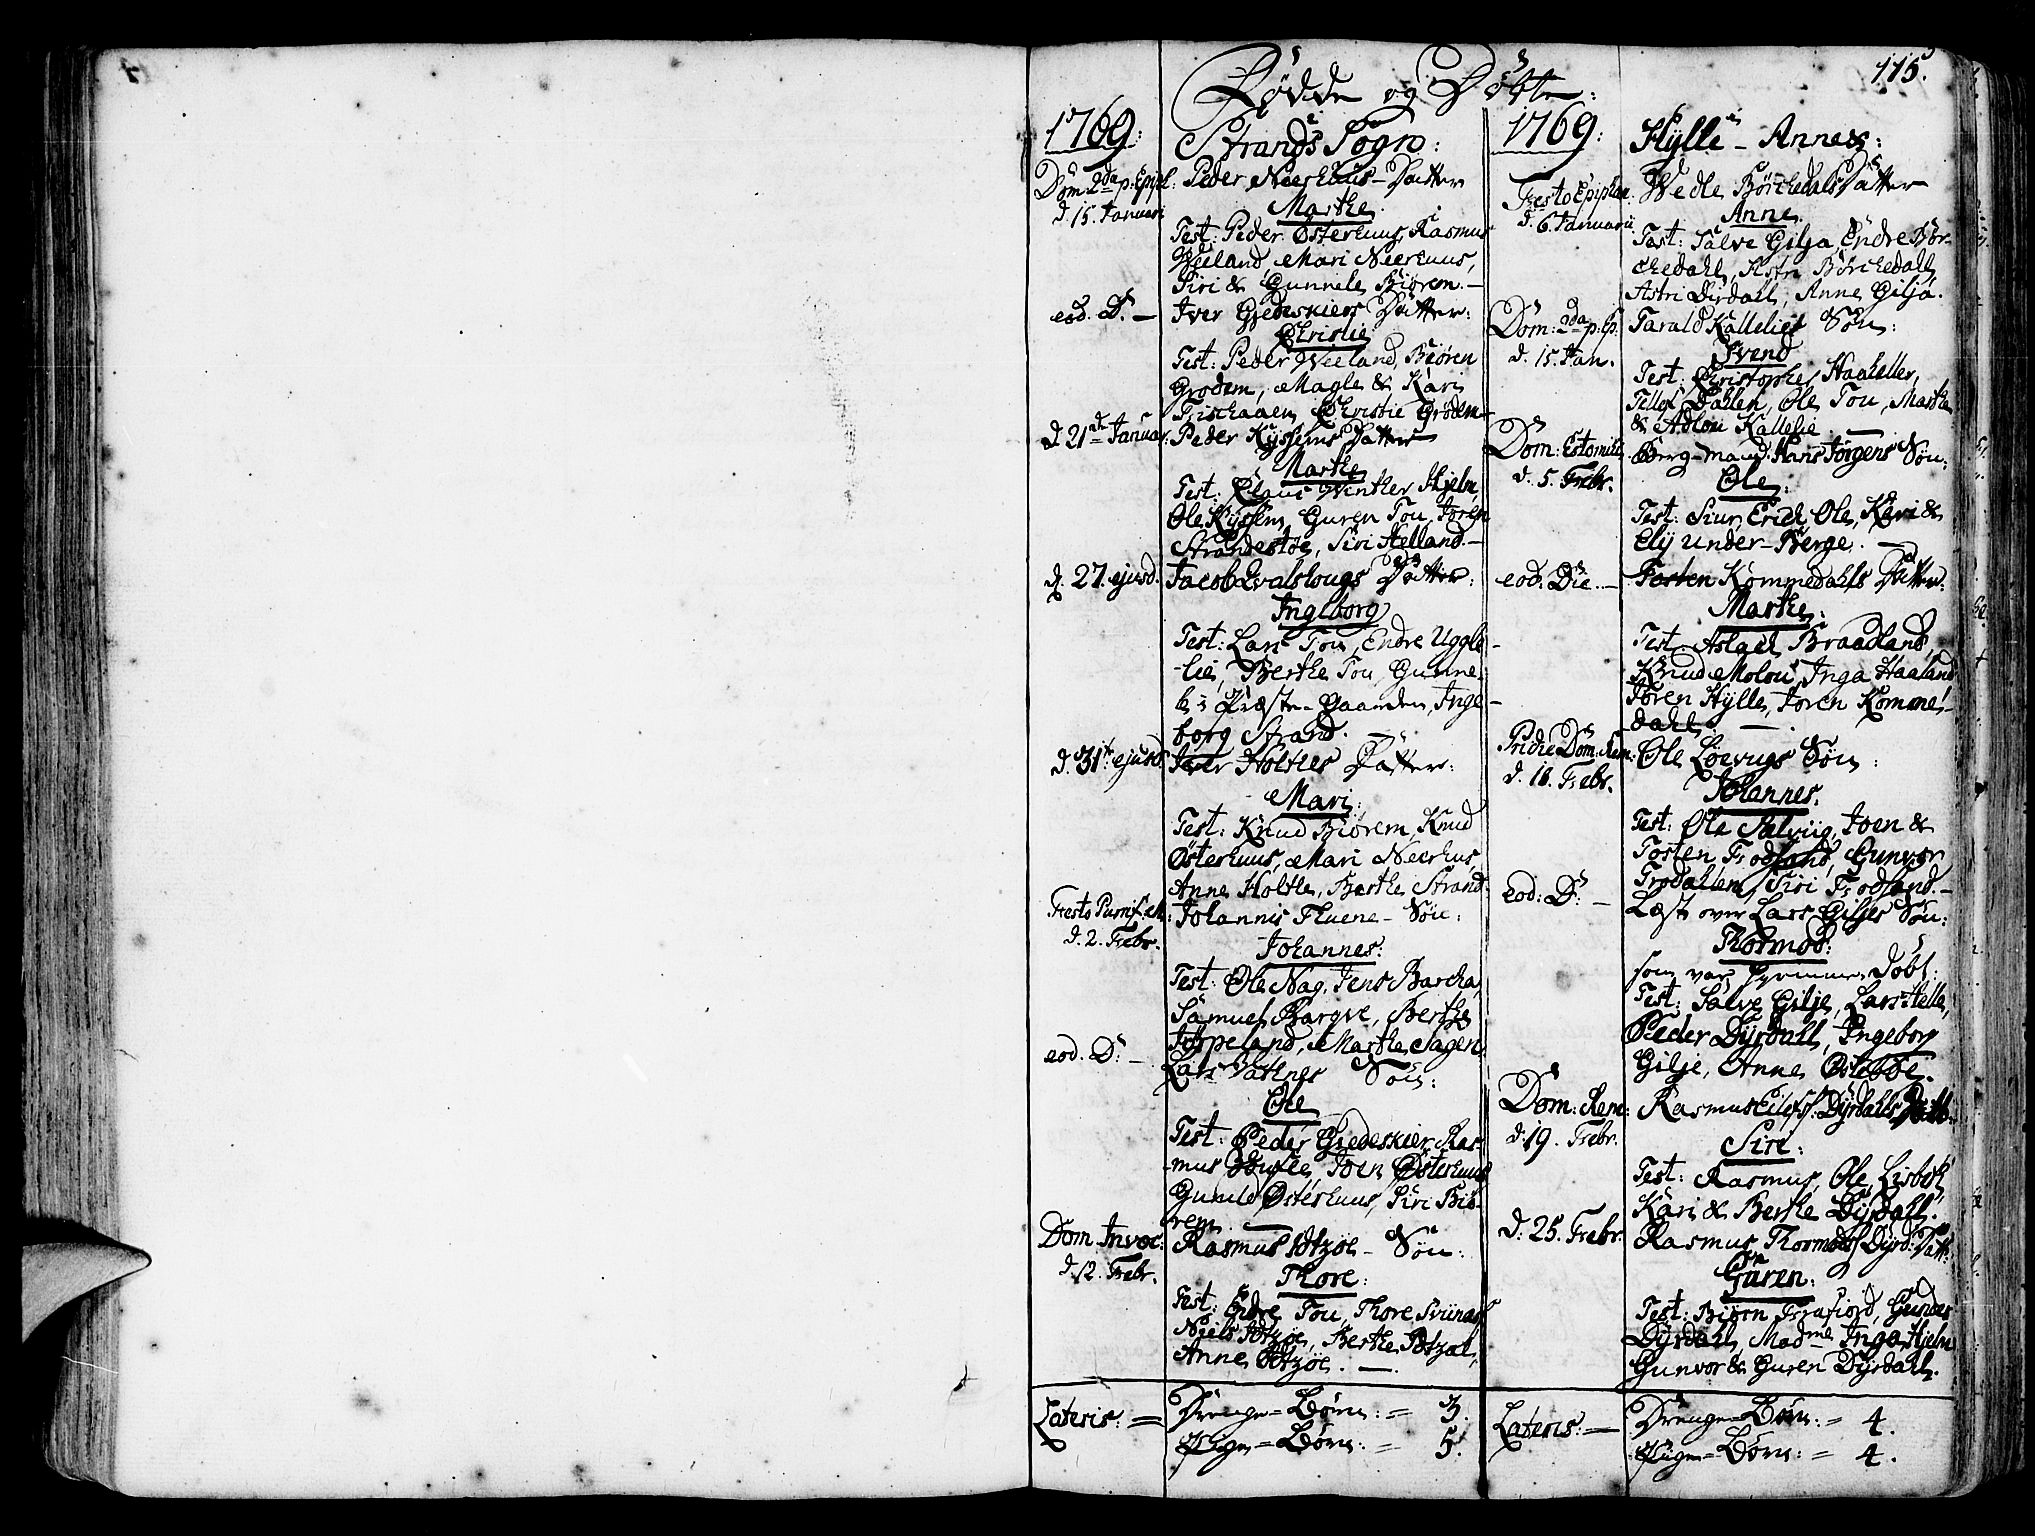 115.
Fødde og Døbte:
1769:
Strands Sogn:
Dom: 2da p: Epiph:
d. 15. Januari
Peder Neerhuus - Datter
Marthe
Test: Peder Østerhuus, Rasmus
Weeland, Mari Neerhuus,
Siri & Gunnele Biørem. -
eod. D: -
Iver Gjedeskiers Datter:
Christie
Test: Peder Weeland, Biøren
Grodem, Magle & Kari
Fischaaen, Christie Grødem -
d. 21de Januar:
Peder Kyssems Datter
Marthe
Test: Claus Winther Hjelm,
Ole Kyssem, Guren Tou, Joren
Strandestøe, Siri Helland. -
d. 27. ejusd.
Jacob Qvalslougs Datter:
Inglborg
Test: Lars Tou, Endre Uggle-
-lie, Berthe Tou, Gunne-
le i Præste-Gaarden, Inge-
borg Strand. -
d. 31te ejusd
Iver Holtles Datter:
Mari:
Test: Knud Biørem, Knud
Østerhuus, Mari Neerhus,
Anne Holtle, Berthe Strand
Festo Purif. M:
d. 2. Febr.
Johannis Fluene - Søn:
Johannes:
Test: Ole Nag, Jens Barcka,
Samuel Bargve, Berthe
Jøpeland, Marthe Sagen
eod. D: -
Lars Vathnes Søn:
Ole
Test: Peder Giedeskier, Ras-
mus, Joen Østerhuus
Gunele Østerhuus, Siri Biø-
rem. -
Dom Invoc:
d. 12. Febr.
Rasmus Idtzøe - Søn:
Thore:
Test: Endre Tou, Thore Sviinaas
Niels Idtzøe, Berthe Idtzøe,
Anne Idtzøe. -
Lateris: =
Drenge=Børn: = 3.
Pige=Børn: = 5.
1769:
Hylle - Annex:
Festo Epiphan:
d. 6. Januarii
Wedle Børchedals Datter
Anne.
Test: Salve Gilja, Endre Bør-
chedahl, Astri Børchedall,
Astri Dirdall, Anne Gilja.
Dom: 2da p: Ep.
d. 15. Jan.
Tarald Kallelies Søn:
Svend
Test: Christopher Haaheller,
Tellef Dahlen, Ole Tou, Marthe
& Adlou Kallelie -
Dom: Estomihi
d. 5. Febr.
Berg-mand Hans Jørgens Søn:
Ole:
Test: Siur, Erich, Ole, Kari &
Ely under-Berge. -
eod: Die. -
Tosten Kommedahls Datter.
Marthe:
Test: Aslach Braadland,
Knud Molou, Inga Haaland
Joren Hylle, Joren Komme-
dahl. -
Pridie Dom: Rem:
d. 18. Febr.
Ole Løevugs Søn:
Johannes.
Test: Ole Selviig, Joen &
Tosten Frodsand, Gunvor
Frodallem, Siri Frodsand. -
eod: D: -
Læst over Lars Giljes Søn:
Thormod:
som var hjemme døbt:
Test: Salve Gilje, Lars Helle,
Peder Dyrdall, Ingeborg
Gilje, Anne Østebøe.
Dom: Rem:
d. 19. Febr.
Rasmus Eilefs: Dyrdalls Datt:
Siri:
Test: Rasmus, Ole, Lisbet,
Kari & Berthe Dyrdall.
d. 25. Febr.
Rasmus Thormods Dyrd: Datt:
Guren:
Test: Biørn Frafiord, Gunder
Dyrdall, Madme Inga Hjelm
Gunvor & Guren Dyrdall.
Lateris: =
Drenge=Børn: = 4.
Pige=Børn: = 4.